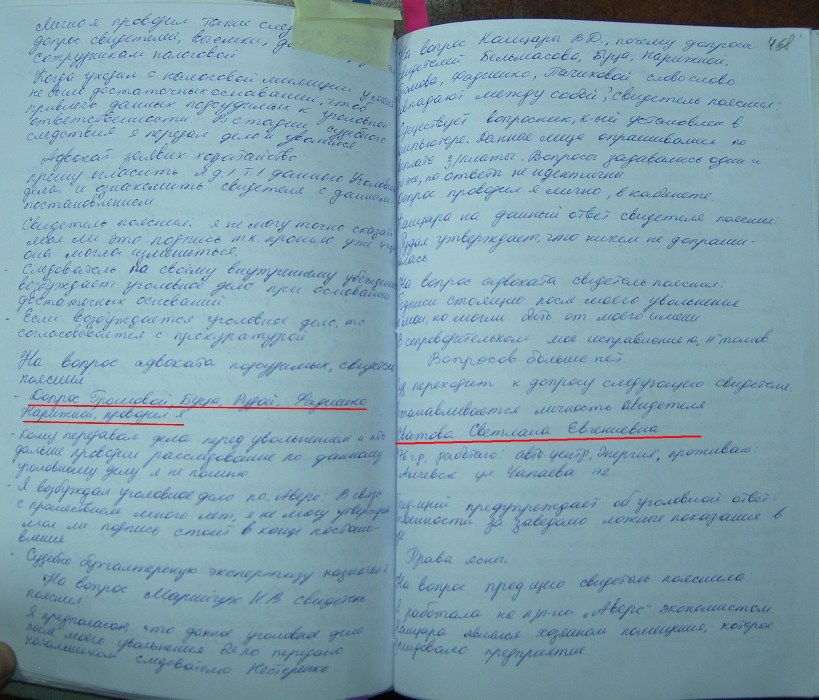 Лично я проводил также след
допрос свидетелей, выемки, до
сотрудниками налоговой
Когда уходил с налоговой милиции у меня
не было достаточных оснований, чтоб
привлечь данных подсудимых к уголовной
ответственности. В стадии судебного
следствия я передал дело и уволился
Адвокат заявил ходатайство
прошу огласить л.д 1 т.1 данные Уголовного
дела и ознакомить свидетеля с данным
постановлением.
Свидетель пояснил: я не могу точно сказать
моя ли это подпись т.к. прошло уже
она могла измениться.
- Следователь по своему внутреннему убеждению
возбуждает уголовное дело при основании
достаточных оснований
- Если возбуждается уголовное дело, то
согласовывается с прокуратурой
На вопрос адвоката подсудимых, свидетель
пояснил
- Допрос Громовой, Буца, Рудой, Фадиенко
Нарижной, проводил я
- Кому передавал дела перед увольнением и кто
дальше проводил расследование по данному
уголовному делу я не помню.
- Я возбуждал уголовное дело по „Аверс". В связи
с прошествием много лет, я не могу утверждать
моя ли подпись стоит в конце постано-
вления
- Судебно бухгалтерскую экспертизу назначал я
На вопрос Марийчук И.В свидетель
пояснил
Я предполагаю, что данное уголовное дело
после моего увольнения было передано
начальником следователю Нестеренко
468
На вопрос Кашцары В.Д., почему допросы
свидетелей Бельмасова, Буца, Нарижной,
Громова, Фадиенко, Пачиковой слово слово
совпадают между собой, свидетель пояснил:
Существует вопросник, к-ый установлен в
компьютере. Данные лица опрашивались по
выплате з/платы. Вопросы задавались одни и
те же, но ответы не идентичны.
Допрос проводил я лично, в кабинете.
Кашцара на данный ответ свидетеля пояснил:
Рудая утверждает, что никем не допраши-
валась
На вопрос адвоката свидетель пояснил:
Подписи стоящие после моего увольнения
не мои, но могли быть от моего имени
В сопроводительном мое исправление ю, 11 томов
Вопросов больше нет
Суд переходит к допросу следующего свидетеля
Устанавливается личность свидетеля
Светлана Евгениевна
76 г.р, работаю: авто-центр „Энергия", проживаю:
Алчевск ул Чапаева
Пред-щий предупреждает об уголовной ответ-
ственности за заведомо ложные показания в
де
Права ясны.
На вопрос пред-щего свидетель пояснила
Я работала на пр-тии „Аверс" экономистом
Кашцара являлся хозяином помещения, которое
арендовало предприятие